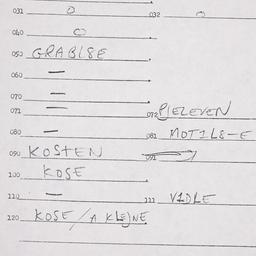 031 O 032 O
040 O
050 GRABISE
060 —
070 —
071 — 072 PIELEVEN
080 — 081 MOTILS-E
090 KOSTEN 091
100 KOSE
110 — 111 VIDLE
120 KOSE / A KLEJNE